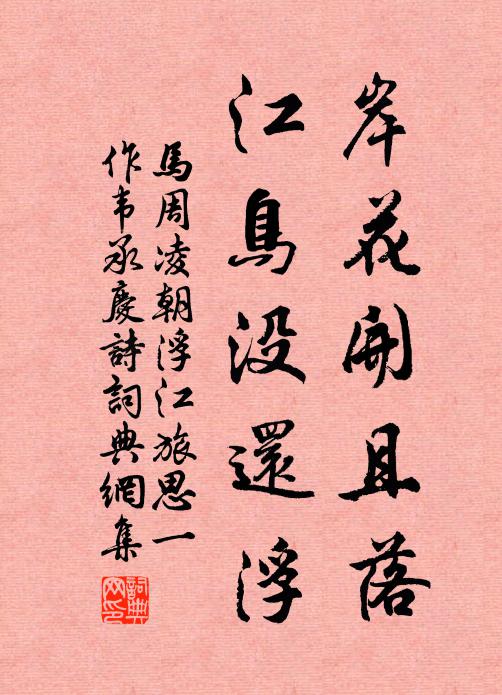 岸花開且落
江鳥没還浮
馬周凌朝浮江旅思一
作韦承慶詩詞典網集
詞典网印